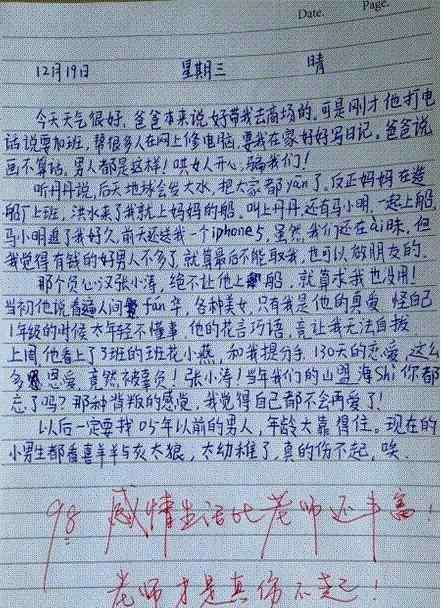 Date. Page.
12月19日 星期三 晴
今天天气很好，爸爸本来说好带我去商场的，可是刚才他打电
话说要加班，帮很多人在网上修电脑，要我在家好好写日记。爸爸说
画不算话，男人都是这样！哄女人开心，骗我们！
听丹丹说，后天地球会发大水，把大家都yān了。反正妈妈在造
船厂上班，洪水来了我就上妈妈的船。叫上丹丹，还有马小明，一起上船，
马小明追了我好久，前天还送我一个iphone5，虽然我们还在ài昧，但
我觉得有钱的好男人不多了，就算最后不能取我，也可以做朋友的。
那个负心汉张小涛，绝不让他上船，就算求我也没用！
当初他说看遍人间fán华，各种美女，只有我是他的真爱，怪自己
1年级的时候太年轻不懂事，他的花言巧语，竟让我无法自拔
上周他看上了3班的班花小燕，和我提分手，130天的恋爱，这么
多恩爱，竟然被辜负！张小涛！当年我们的山盟海Shì你都
忘了吗？那种背叛的感觉，我觉得自己都不会再爱了！
以后一定要找05年以前的男人，年龄大靠得住。现在的
小男生都看喜羊羊与灰太狼，太幼稚了，真的伤不起，唉.
98 感情生活比老师还丰富！
老师才是真伤不起！